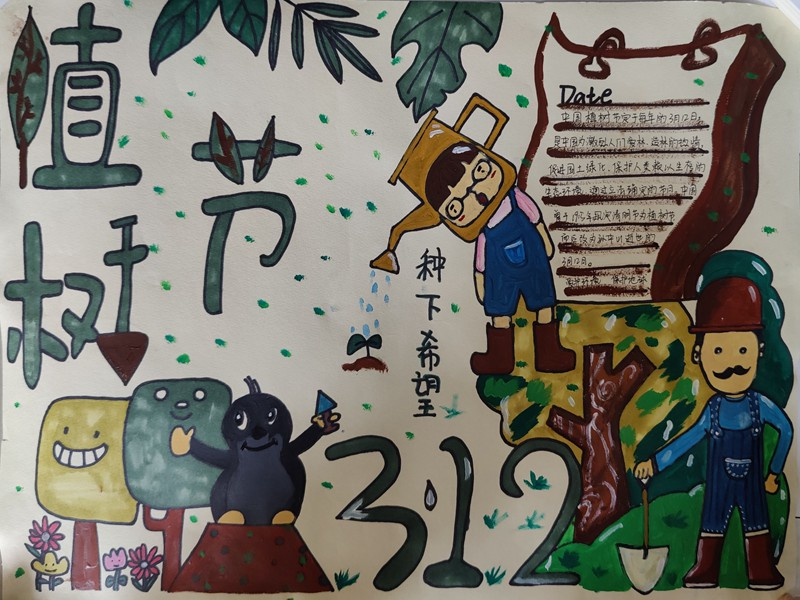 植树节
Date
中国植树节定于每年的3月12日。
是中国为激励人们爱林、造林的热情、
促进国土绿化、保护人类赖以生存的
生态环境、通过立法确定的节日。中国
而后改为孙中山逝世的
3月12日。
种下希望
3·12